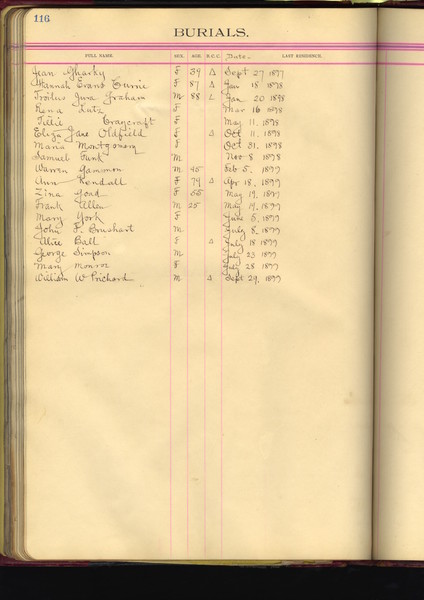 116
BURIALS.
FULL NAME. SEX. AGE. D.C.C. Date. LAST RESIDENCE.
Jean Gharky F 39 Δ Sept 27 1897
Hannah Evans Currie F 87 Δ Jan 18 1898
Troilus Graham M 88 Jan 20 1898
Rena Lutz F Mar 16 1898
Tillie Craycraft F May 11. 1898
Eliza Jane Oldfield F Δ Oct 11. 1898
Maria Montgomery F Oct 31. 1898
Samuel Funk M Nov 8 1898
Warren Gammon M 45 Feb 5. 1899
Ann Kendall F 79 Δ Apr 18, 1899
Zina F May 19, 1899
Frank Allen M 25 May 19, 1899
Mary York F June 5, 1899
John F. Brushart M July 8, 1899
Alice Ball F Δ July 18 1899
George Simpson M July 23 1899
Mary Monroe F July 28 1899
William W Prichard M Δ Sept 29, 1899